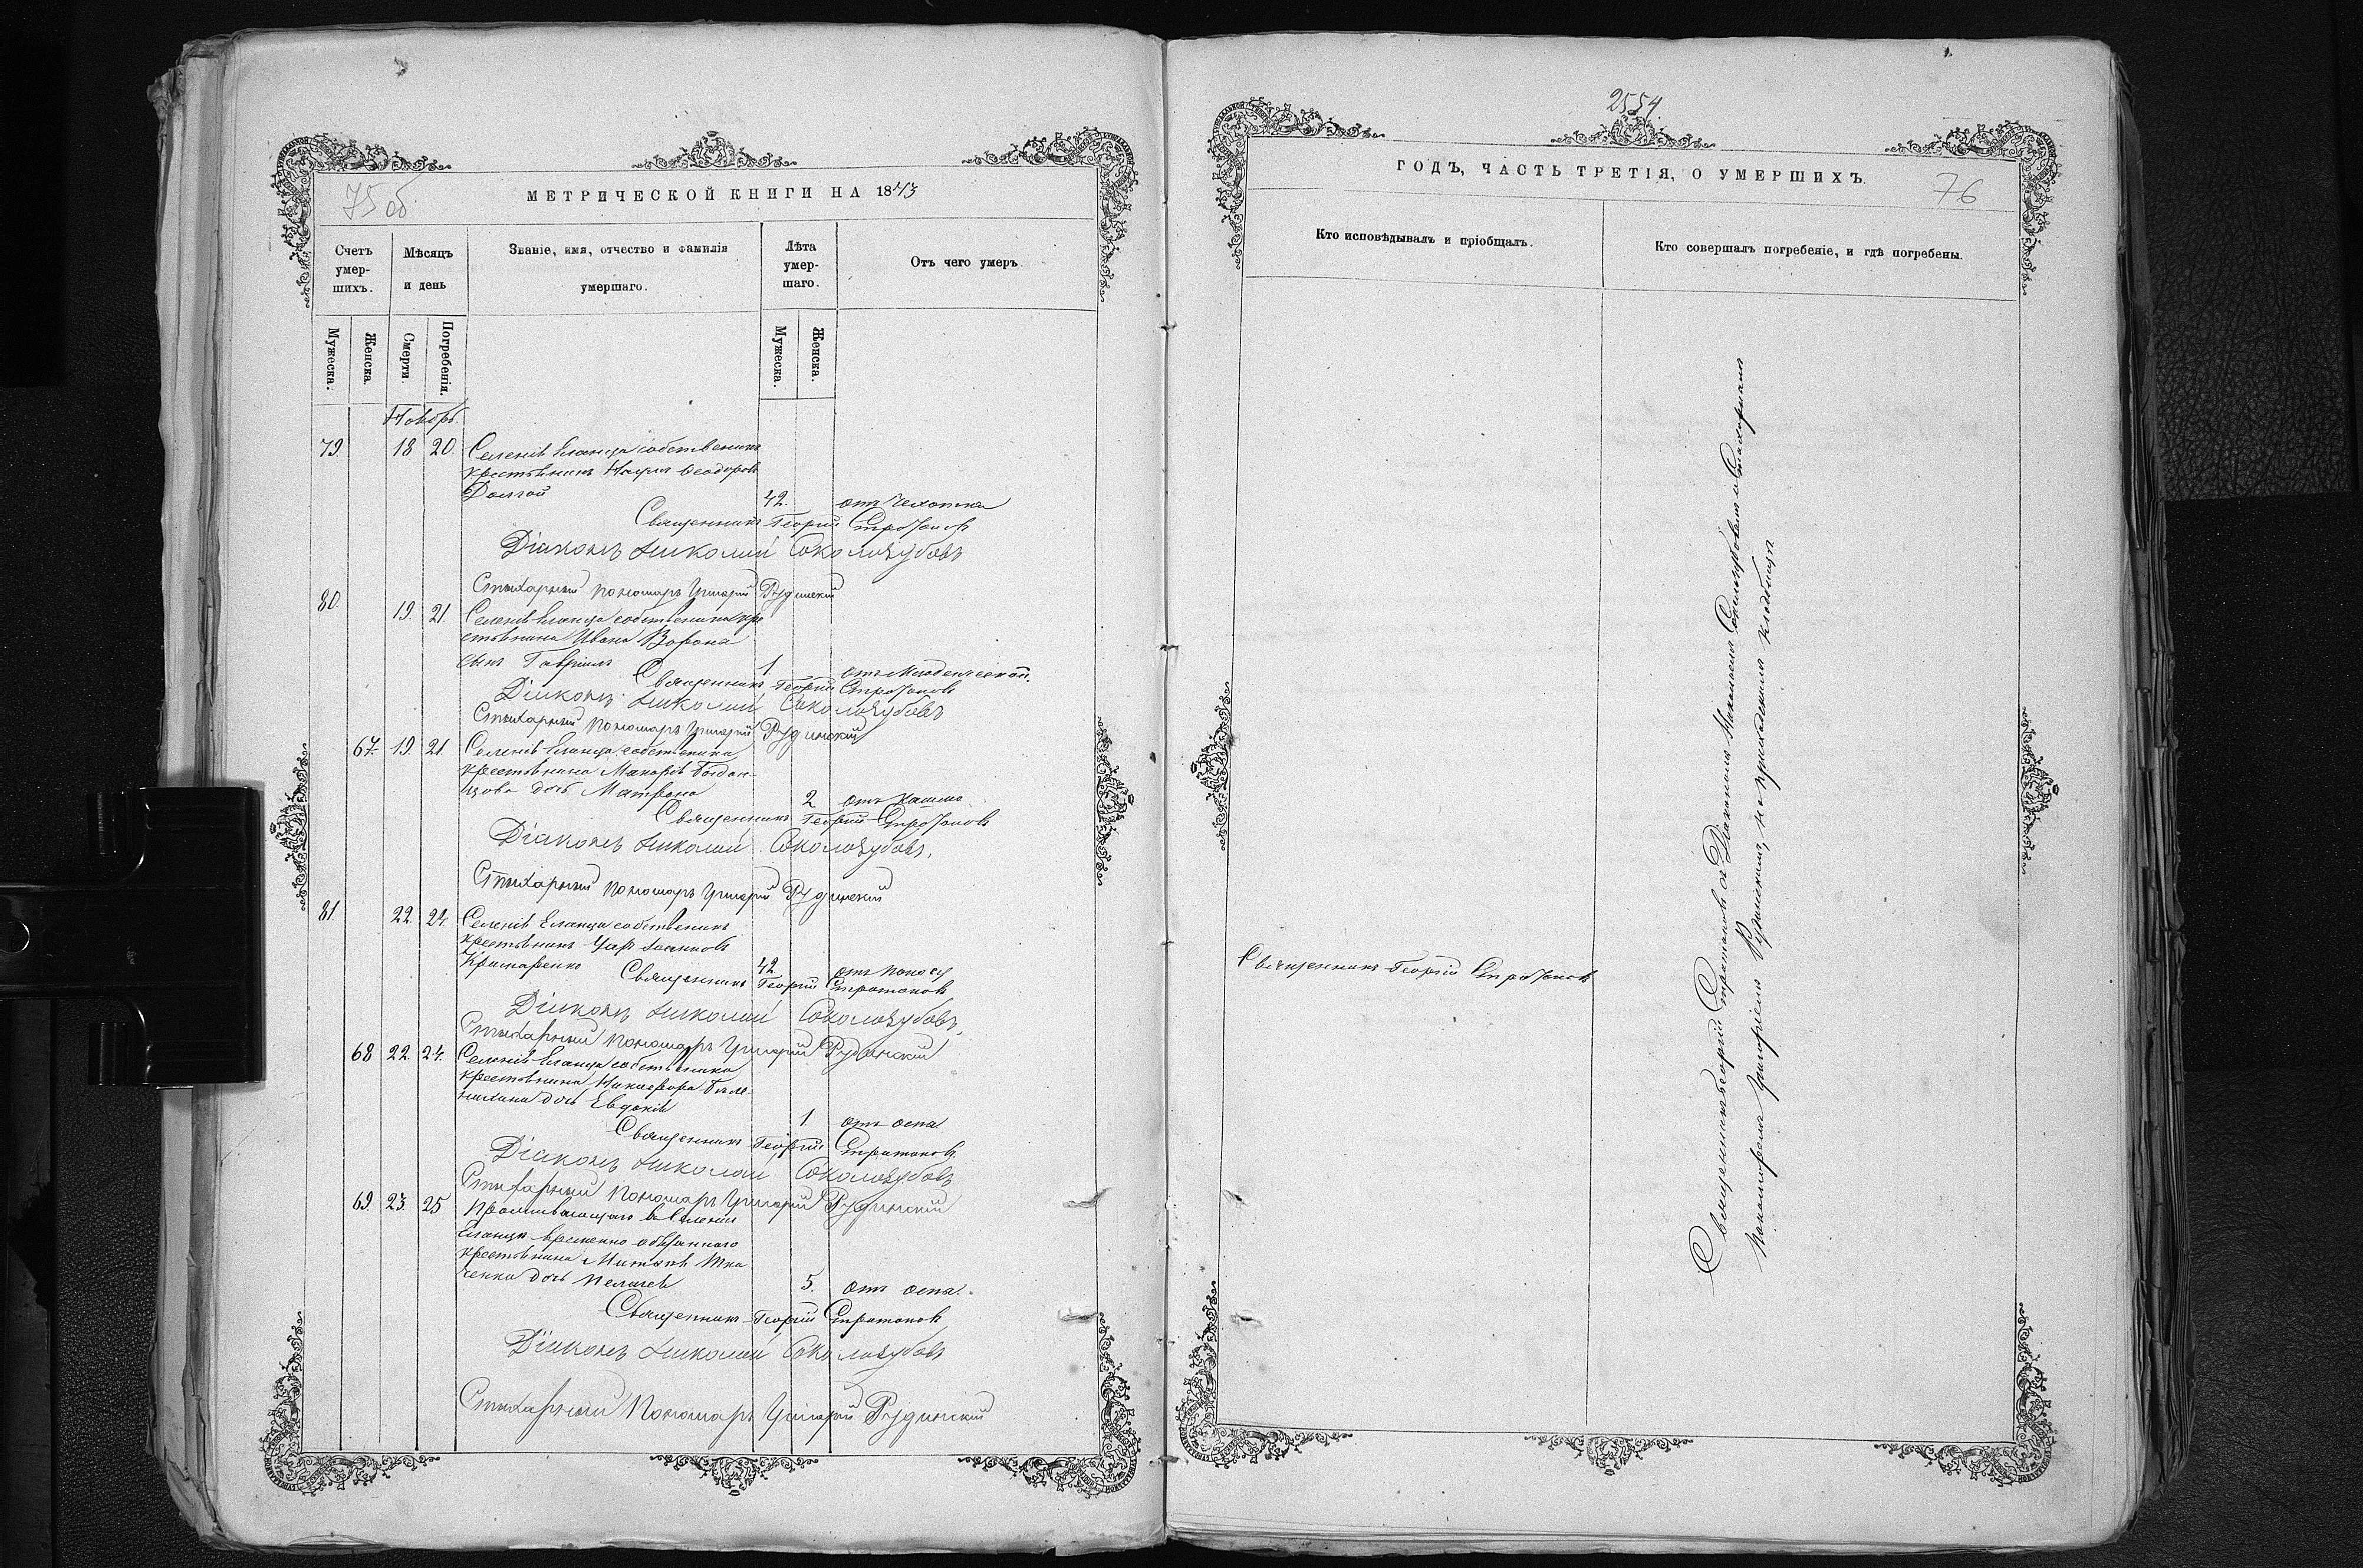 75 об
МЕТРИЧЕСКОЙ КНИГИ НА 1873
Счетъ умер-шихъ.
Мѣсяцъ и день
Званіе, имя, отчество и фамилія умершаго.
Лѣта умер-шаго.
Отъ чего умеръ
Мужеска.
Женска.
Смерти.
Погребенія.
Мужеска.
Женска.
Ноябрь
79. 18 20. Селенія Еланца собственикъ
крестьянинъ Наумъ Феодоровъ
Долгой 42. отъ чехотки
Священникъ Георгій Стратоновъ
Діаконъ Николай Соколозубовъ
Стихарный Пономарь Григорій Рудинскій
80. 19. 21. Селенія Еланца собственика кре
стьянина Ивана Ворона
сынъ Гавріилъ 1 отъ младенческой.
Священникъ Георгій Стратоновъ
Діаконъ Николай Соколозубовъ
Стихарный Пономарь Григорій Рудинскій
67. 19 21. Селенія Еланца собственика
крестьянина Макарія Богдан-
цова дочь Матрона 2 отъ кашлю
Священникъ Георгій Стратоновъ
Діаконъ Николай Соколозубовъ.
Стихарный Пономарь Григорій Рудинскій
81. 22. 24. Селенія Еланца собственикъ
крестьянинъ Іоанновъ
42 отъ поносу
Священникъ Георгій Стратоновъ
Діаконъ Николай Соколозубовъ.
Стихарный Пономарь Григорій Рудинскій
68 22. 24. Селенія Еланца собственика
крестьянина Никифора
дочь Евдокія 1. отъ оспа
Священникъ Георгій Стратоновъ.
Діаконъ Николай Соколозубовъ
Стихарный Пономарь Григорій Рудинскій
69. 23. 25 Проживающаго въ Селеніи
Еланцѣ временно обязаннаго
крестьянина Тка
ченка дочь Пелагея 5. отъ оспа.
Священникъ Георгій Стратоновъ
Діаконъ Николай Соколозубовъ
Стихарный Пономарь Григорій Рудинскій
2554.
ГОДЪ, ЧАСТЬ ТРЕТІЯ, О УМЕРШИХЪ.
76
Кто исповѣдывалъ и пріобщалъ.
Кто совершалъ погребеніе, и гдѣ погребены.
Священникъ Георгій Стратоновъ
Священникъ Георгій Стратоновъ съ Діакономъ Николаемъ Соколозубовымъ и Стихарнымъ
Пономаремъ Григоріемъ Рудинскимъ, на приходскомъ кладбищѣ